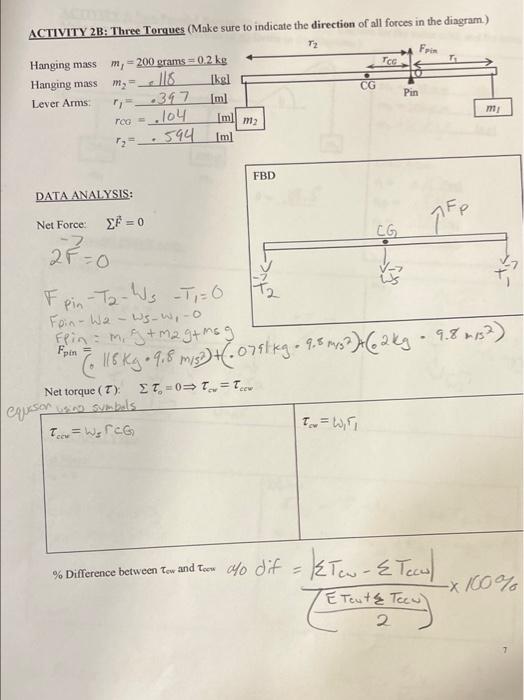 ACTIVITY 2B: Three Torques (Make sure to indicate the direction of all forces in the diagram.)
Hanging mass m₁ = 200 grams = 0.2 kg
Hanging mass m₂ = .118 [kg]
Lever Arms: r₁ = .397 [m]
r_CG = .104 [m]
r₂ = .594 [m]
r₂
F_pin
r_CG
r₁
CG
O
Pin
m₂
m₁
FBD
F_P
CG
T₂
W_s
T₁
DATA ANALYSIS:
Net Force: ΣF⃗ = 0
ΣF⃗ = 0
F_pin - T₂ - W_s - T₁ = 0
F_pin - W₂ - W_s - W₁ = 0
F_pin = m₁g + m₂g + m_s g
F_pin =
(.118 kg · 9.8 m/s²) + (.0791 kg · 9.8 m/s²) + (.2 kg · 9.8 m/s²)
Net torque (τ): Σ τ₀ = 0 ⇒ τ_cw = τ_ccw
using symbols
τ_ccw = W_s r_CG
τ_cw = W₁r₁
% Difference between τ_cw and τ_ccw % dif = |ΣT_cw - ΣT_ccw| / ((ΣT_cw + ΣT_ccw) / 2) × 100%
7